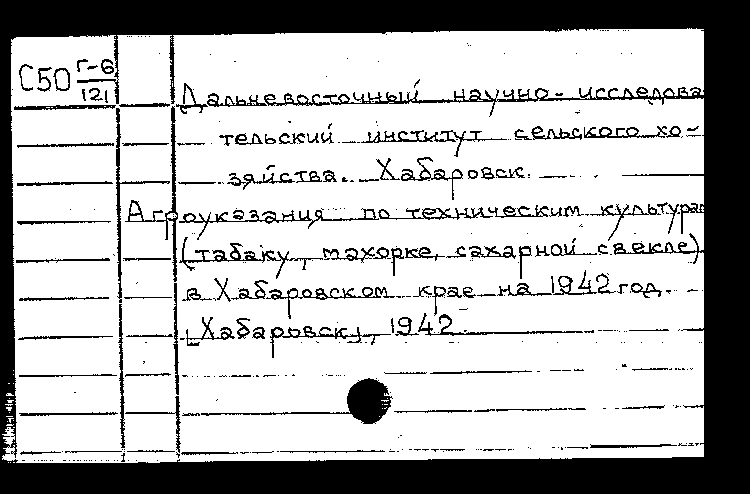 С50 Г-6
121
Дальневосточный научно- исследова
тельский институт сельского хо-
зяйства. Хабаровск.
Агроуказания по техническим культурам
(табаку, махорке, сахарной свекле)
в Хабаровском крае на 1942 год.
[Хабаровск], 1942.